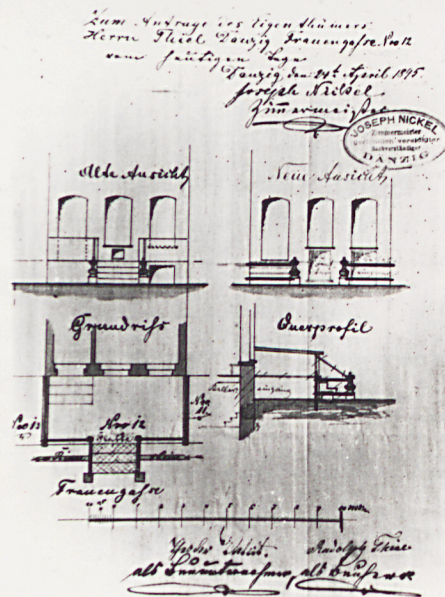 Zum Antrage des Eigenthümers
Herrn Thiel Danzig Frauengasse Nro 12
vom heutigen Tage
Danzig, den 24ten April 1895
Joseph Nickel
Zimmermeister
JOSEPH NICKEL
Zimmermeister
vereidigter
Sachverständiger
DANZIG
Alte Ansicht
Neue Ansicht
Grundriss
Querprofil
Keller eingang
Nro 13
Nro 12
Nro 11
Frauengasse
Rudolph Thiel
als Bauunternehmer, als Bauherr